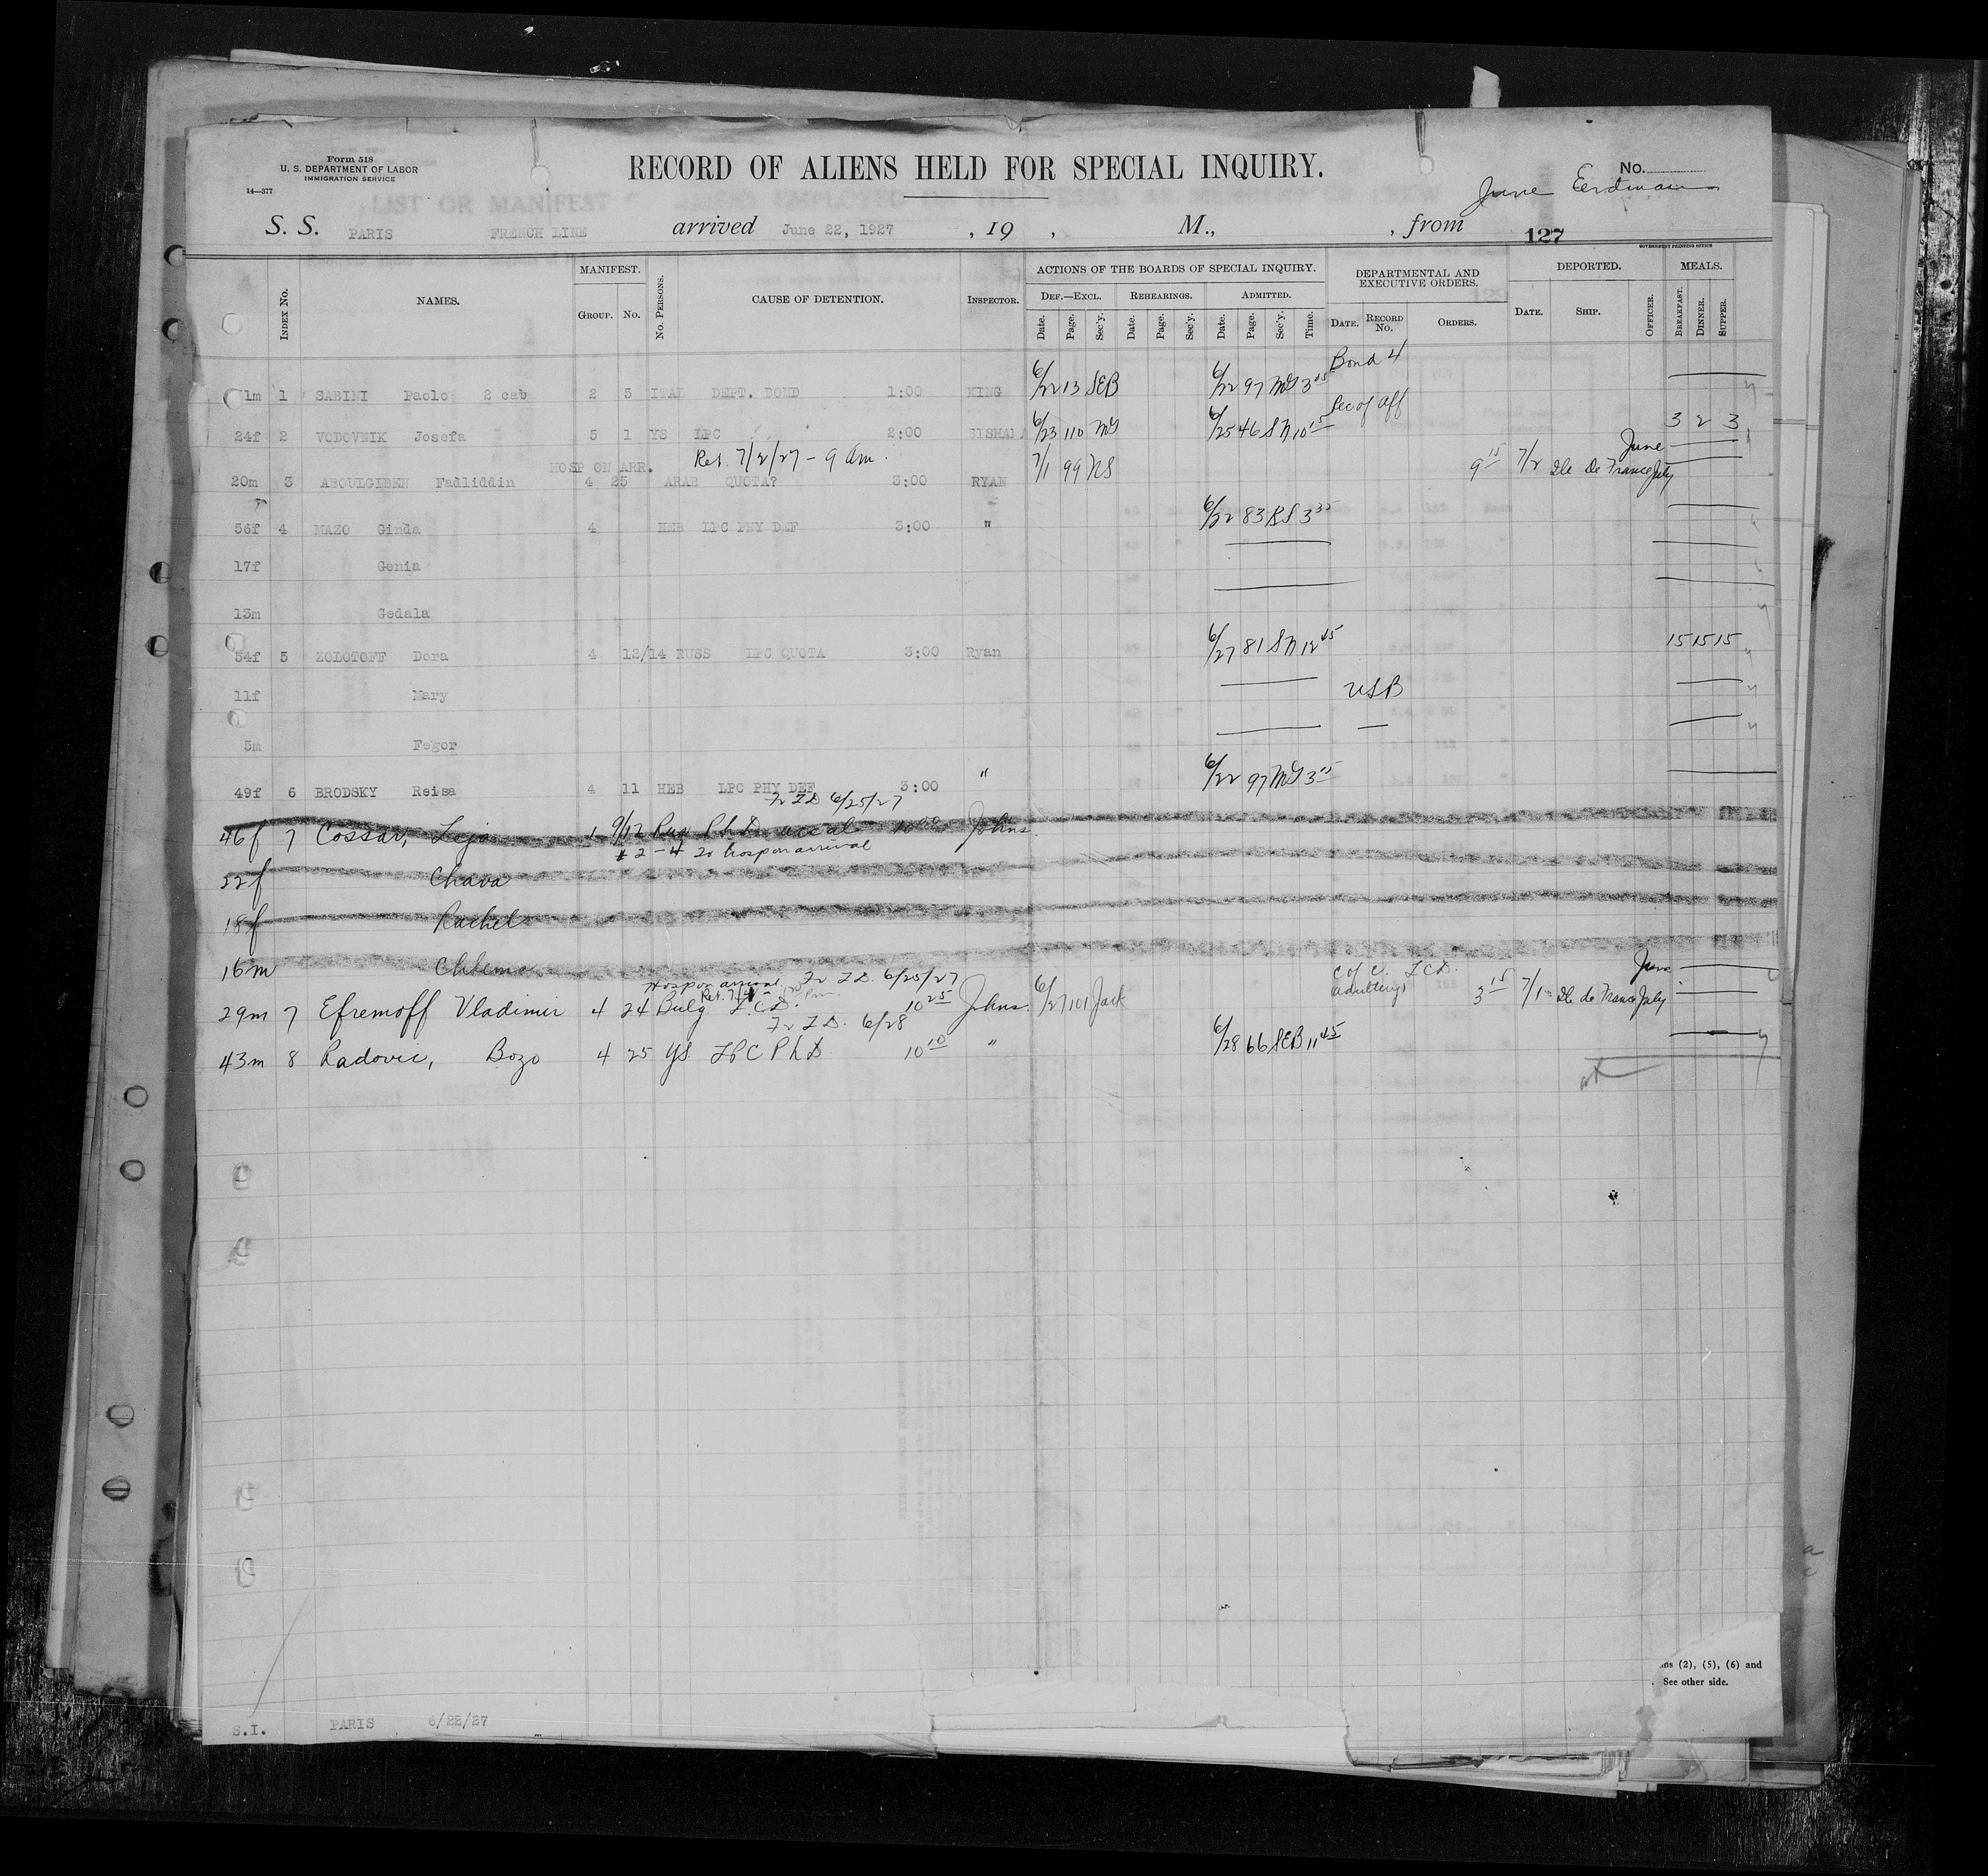 Form 518
U. S. DEPARTMENT OF LABOR
IMMIGRATION SERVICE
14—377
RECORD OF ALIENS HELD FOR SPECIAL INQUIRY.
No.
June Erdman
LIST OR MANIFEST
S. S. PARIS FRENCH LINE arrived June 22, 1927 , 19 , M., , from 127
GOVERNMENT PRINTING OFFICE
INDEX No. NAMES. MANIFEST. GROUP. No. No. PERSONS. CAUSE OF DETENTION. INSPECTOR. ACTIONS OF THE BOARDS OF SPECIAL INQUIRY. DEPARTMENTAL AND EXECUTIVE ORDERS. DEPORTED. MEALS.
DEF.—EXCL. REHEARINGS. ADMITTED.
Date. Page. Sec'y. Date. Page. Sec'y. Date. Page. Sec'y. Time. DATE. RECORD No. ORDERS. DATE. SHIP. OFFICER. BREAKFAST. DINNER. SUPPER.
Bond 4
1m 1 SABINI Paolo 2 cab 2 5 ITAL DEPT. BOND 1:00 KING 6/22 13 SEB 6/22 97 MG 3 15
Rec of Aff
24f 2 VODOVNIK Josefa 5 1 YS LPC 2:00 6/23 110 MG 6/25 46 SN 10 15 3 2 3
HOSP ON ARR. Ret 7/2/27 - 9 am. June
20m 3 ABOULGIBEN Fadliddin 4 25 ARAB QUOTA? 3:00 RYAN 7/1 99 NS 9 15 7/2 Ile De France July
56f 4 MAZO Ginda 4 HEB LPC PHY DEF 3:00 " 6/22 83 RS 3 35
17f Genia
13m Gedala
54f 5 ZOLOTOFF Dora 4 12/14 RUSS LPC QUOTA 3:00 Ryan 6/27 81 SN 12 45 15 15 15
11f Mary USB
5m Fegor
49f 6 BRODSKY Reisa 4 11 HEB LPC PHY DEF 3:00 " 6/22 97 MG 3 15
Fr ID 6/25/27
46f 7 Cossar, Leja 1 9/12 Rus PhD 10 00 Johns.
# 2 - 4 To hosp on arrival
22f Chava
18f Rachel
16m Chlema
Hosp on arrival Fr ID. 6/25/27 June
29m 7 Efremoff Vladimir 4 24 Bulg. L.C.D. 10 25 Johns. 6/27 101 Jack 3 15 7/1 Ile de France July
Fr ID. 6/28
43m 8 Radovic, Bozo 4 25 YS LPC PhD 10 10 " 6/28 66 SEB 11 45
(2), (5), (6) and
See other side.
S.I. PARIS 6/22/27